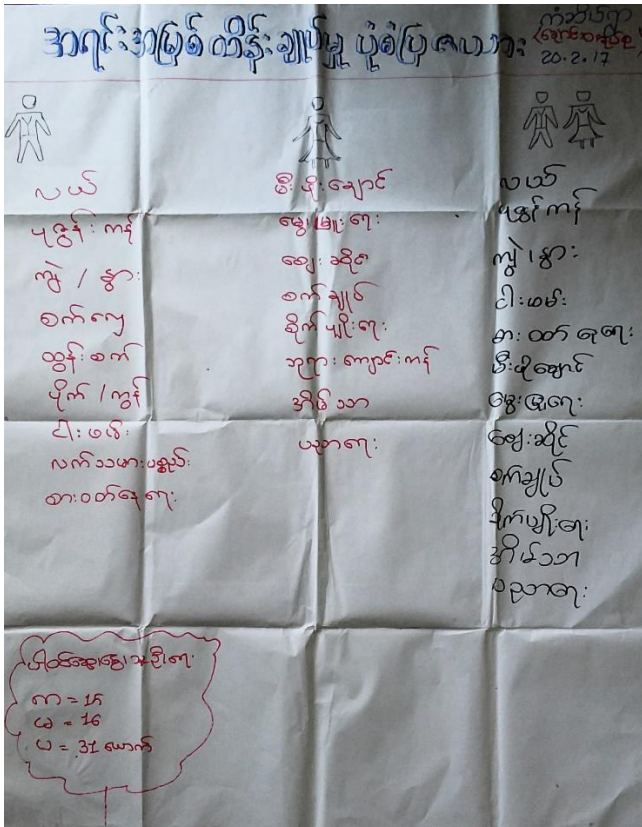 အရင်းအမြစ်ထိန်းချုပ်မှု ပုံစံပြဇယား
20.2.17
လယ်
ပုဇွန်ကန်
ကျွဲ / နွား
စက်လှေ
ထွန်စက်
ပိုက် / ကွန်
ငါးဖမ်း
လက်သမားပစ္စည်း
စားဝတ်နေရေး
မီးဖိုချောင်
မွေးမြူရေး
ဈေးဆိုင်
စက်ချုပ်
စိုက်ပျိုးရေး
ဘုရားကျောင်းကန်
အိမ်သာ
ပညာရေး
လယ်
ပုဇွန်ကန်
ကျွဲ / နွား
ငါးဖမ်း
စားဝတ်နေရေး
မီးဖိုချောင်
မွေးမြူရေး
ဈေးဆိုင်
စက်ချုပ်
စိုက်ပျိုးရေး
အိမ်သာ
ပညာရေး
ပါဝင်ဆွေးနွေးသူဦးရေ
ကာ = 15
မ = 16
ပ = 31 ယောက်